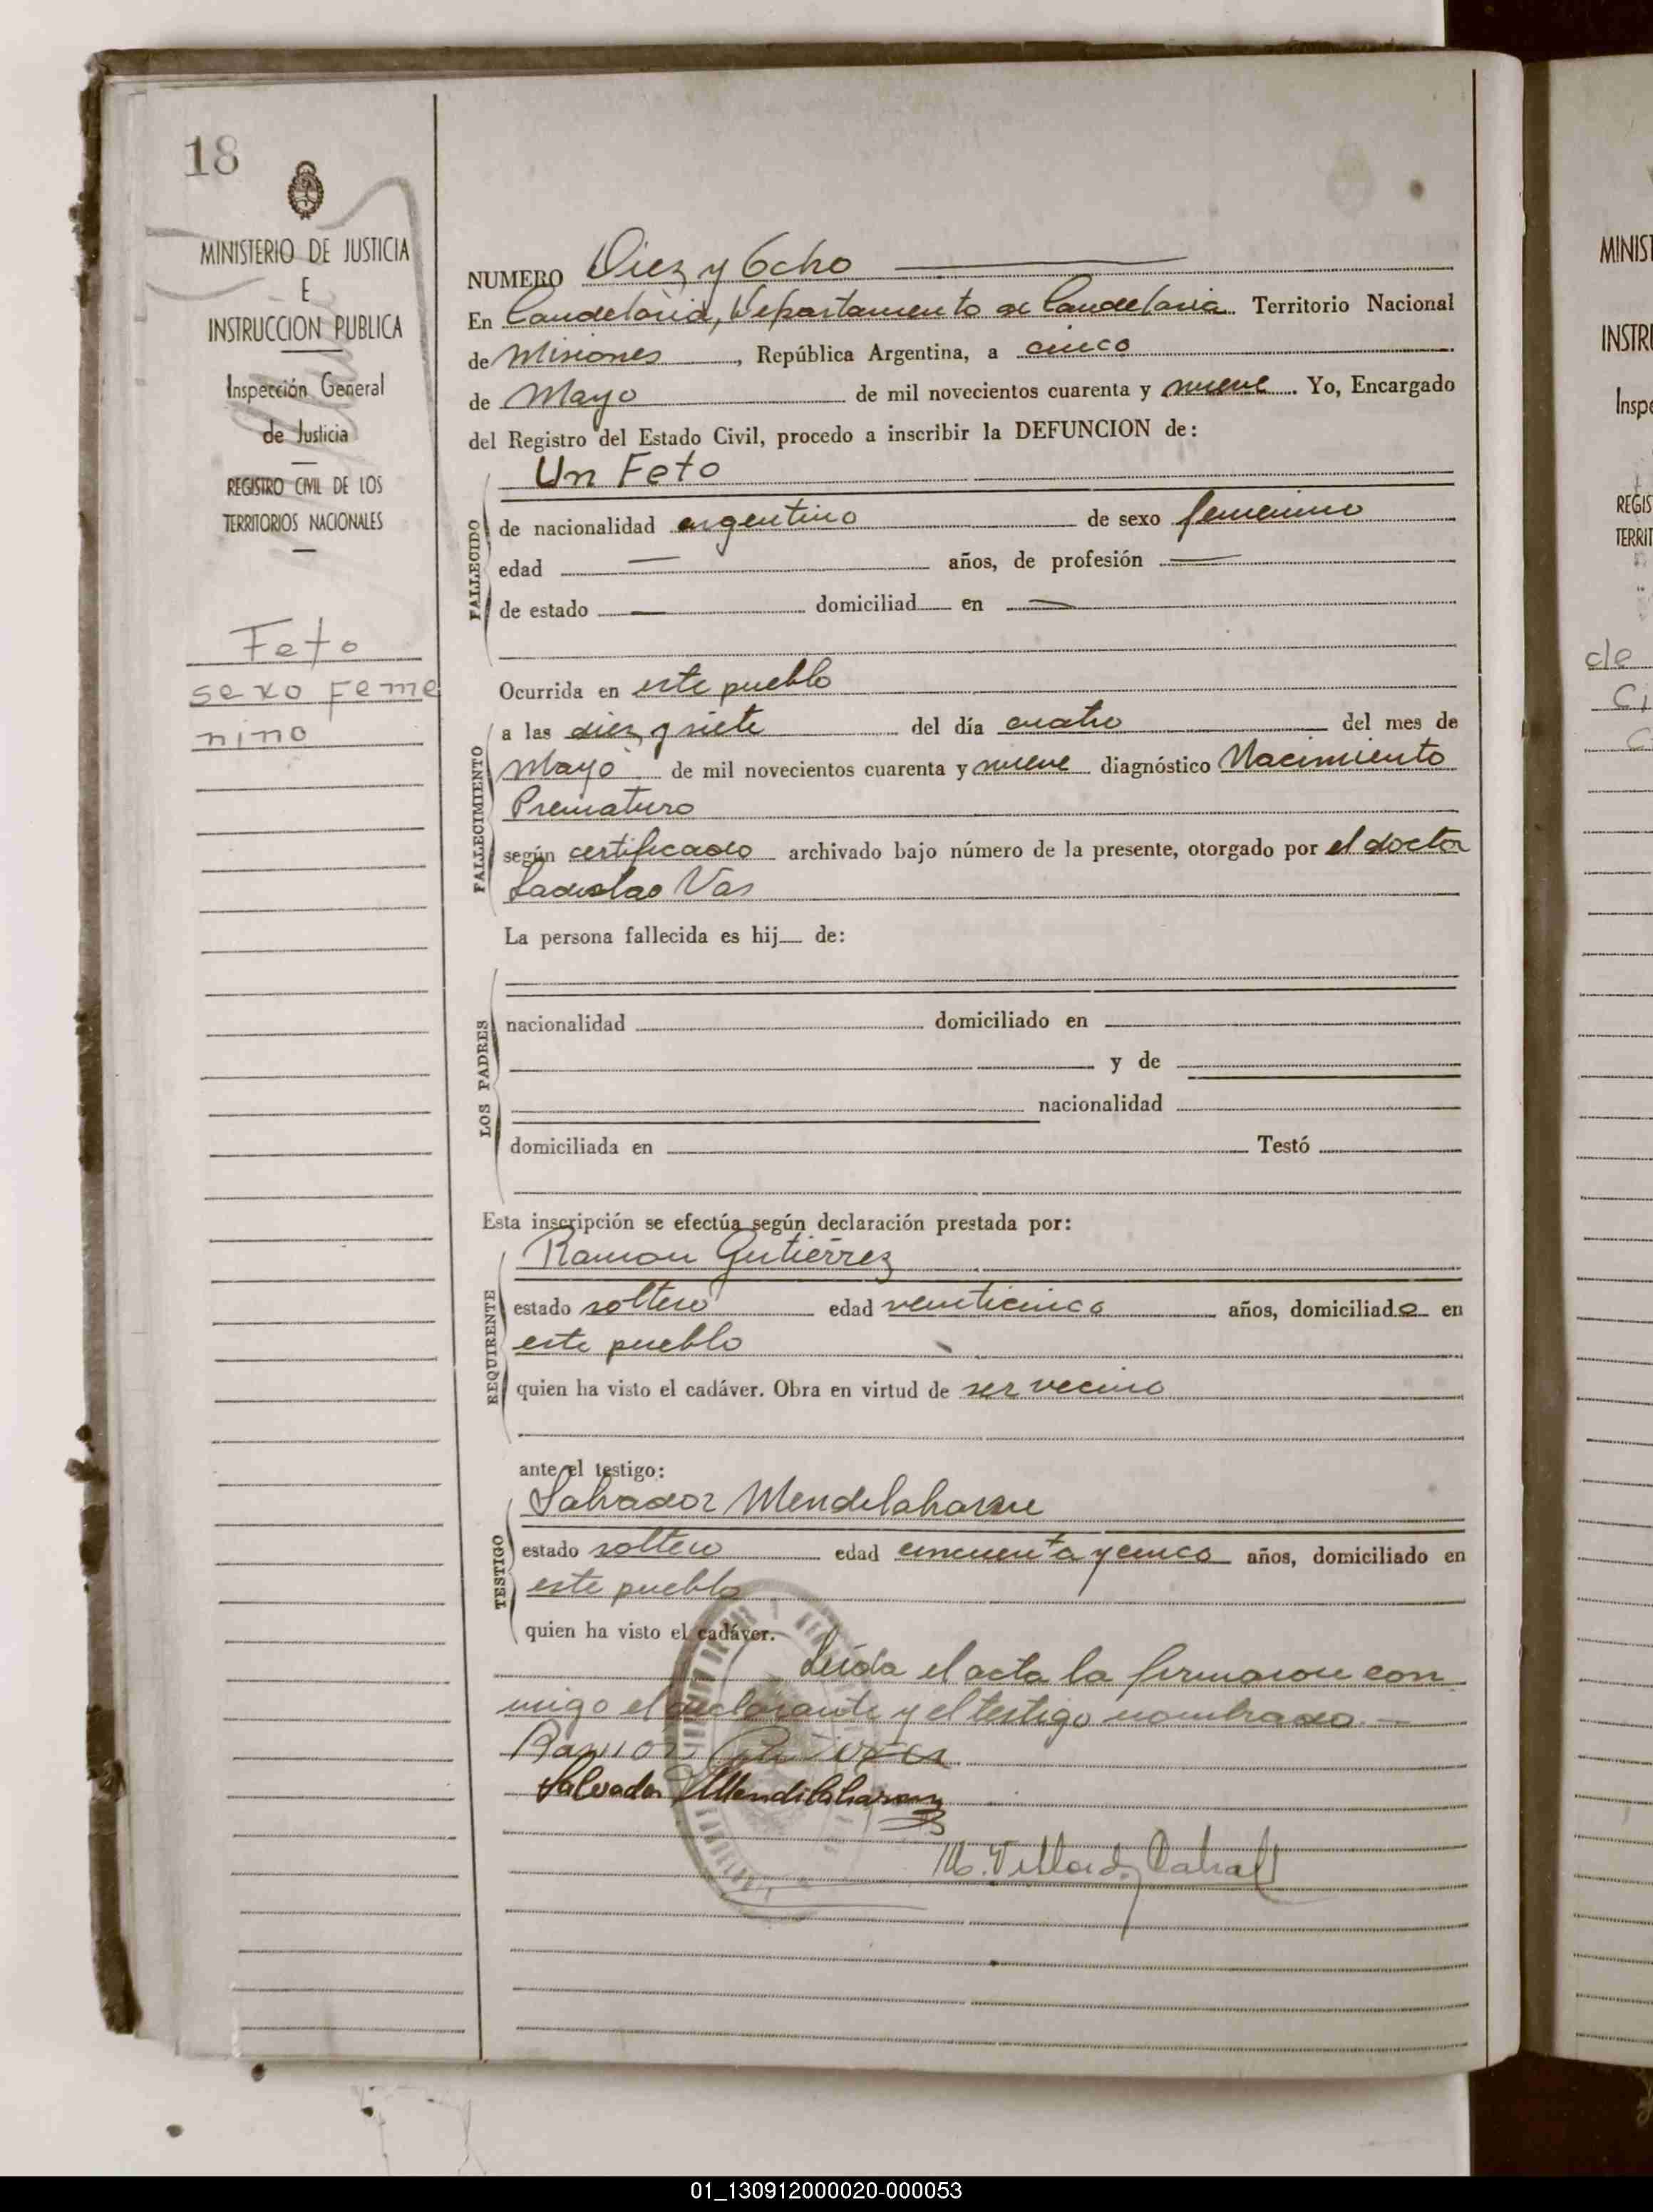 18
MINISTERIO DE JUSTICIA
E
INSTRUCCION PUBLICA
Inspección General
de Justicia
REGISTRO CIVIL DE LOS
TERRITORIOS NACIONALES
Feto
sexo Feme
nino
NUMERO Diez y Ocho
En Candelaria, Departamento de Candelaria Territorio Nacional
de Misiones, República Argentina, a cinco
de Mayo de mil novecientos cuarenta y nueve. Yo, Encargado
del Registro del Estado Civil, procedo a inscribir la DEFUNCION de:
Un Feto
FALLECIDO
de nacionalidad argentino de sexo femenino
edad — años, de profesión —
de estado — domiciliad en —
Ocurrida en este pueblo
FALLECIMIENTO
a las diez y siete del día cuatro del mes de
Mayo de mil novecientos cuarenta y nueve diagnóstico Nacimiento
Prematuro
según certificado archivado bajo número de la presente, otorgado por el doctor
Ladislao Vas
La persona fallecida es hij de:
LOS PADRES
nacionalidad domiciliado en
y de
nacionalidad
domiciliada en Testó
Esta inscripción se efectúa según declaración prestada por:
Ramon Gutiérrez
REQUIRENTE
estado soltero edad veinticinco años, domiciliado en
este pueblo
quien ha visto el cadáver. Obra en virtud de ser vecino
ante el testigo:
Salvador Mendilaharzu
TESTIGO
estado soltero edad cincuenta y cinco años, domiciliado en
este pueblo
quien ha visto el cadáver.
Leida el acta la firmaron con
migo el declarante y el testigo nombrado.—
Ramon
Salvador Mendilaharzu
M. Cabral
MINIST
INSTRU
Inspe
REGIS
TERRIT
de
Ci
C
01_130912000020-000053